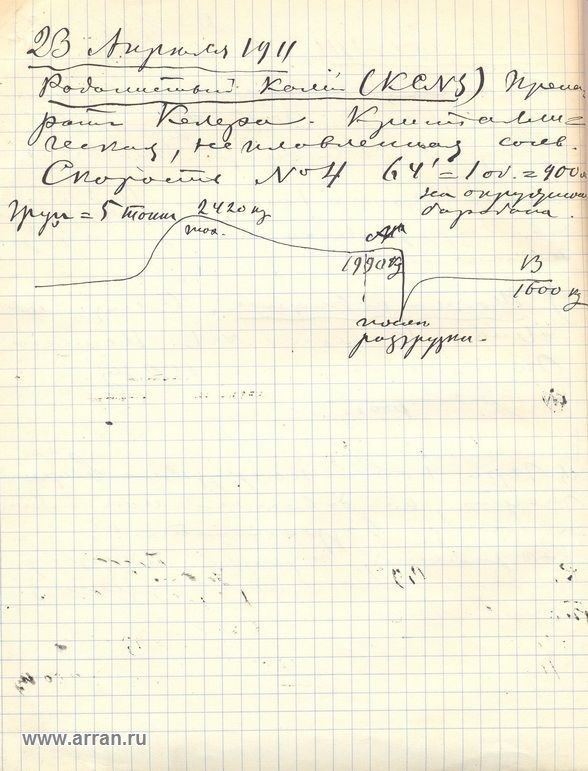 23 Апреля 1911
Роданистый Калий (KCNS) Препа-
рат Келера. Кристалли=
ческая, не плавленная соль.
Скорость №4 64' = 1 об. =
на окружности
барабана.
Груз = 5 тонн
2420 кг
max.
1990 кг
B
1600 кг
после
разгрузки.
www.arran.ru